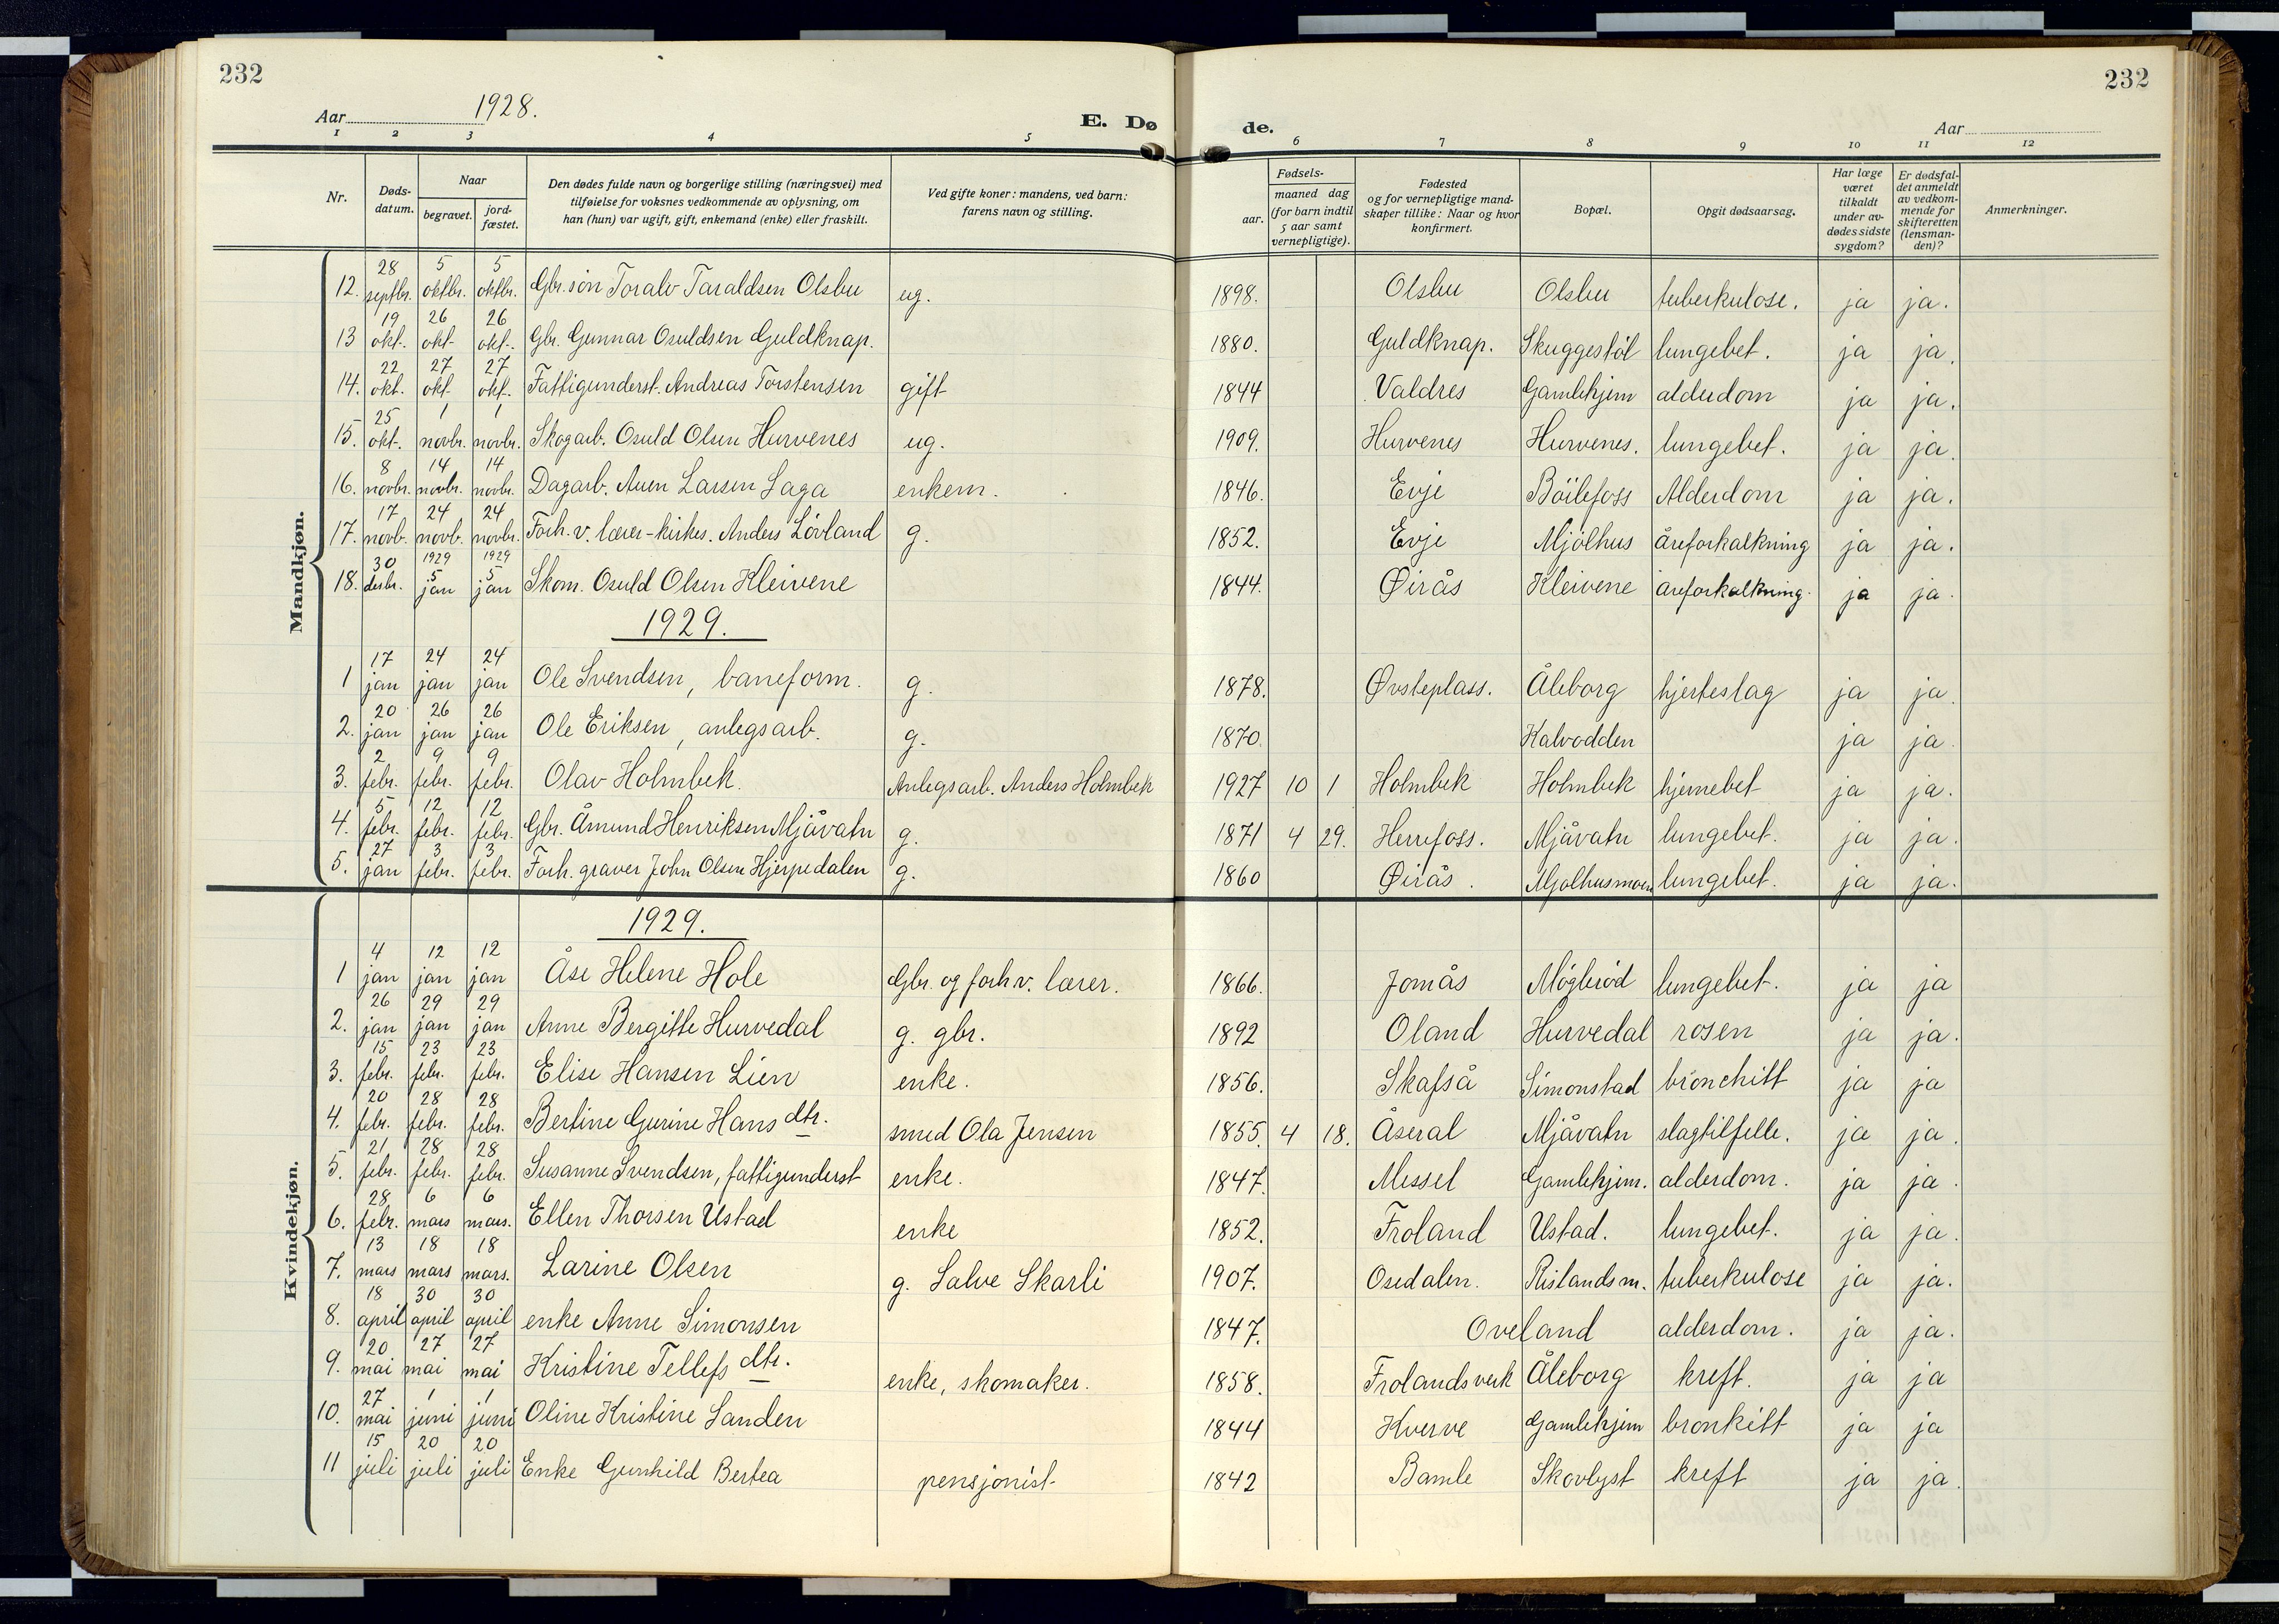 232
232
Aar 1928.
E. Dø
de.
Aar
1 2 3 4 5 6 7 8 9 10 11 12
Nr.
Døds-datum.
Naar
begravet.
jord-fæstet.
Den dødes fulde navn og borgerlige stilling (næringsvei) med tilføielse for voksnes vedkommende av oplysning, om han (hun) var ugift, gift, enkemand (enke) eller fraskilt.
Ved gifte koner: mandens, ved barn: farens navn og stilling.
Fødsels-
aar.
maaned dag
(for barn indtil 5 aar samt vernepligtige).
Fødested og for vernepligtige mand-skaper tillike: Naar og hvor konfirmert.
Bopæl.
Opgit dødsaarsag.
Har læge været tilkaldt under av-dødes sidste sygdom?
Er dødsfal-det anmeldt av vedkom-mende for skifteretten (lensman-den)?
Anmerkninger.
Mandkjøn.
12. 28 septbr. 5 oktbr. 5 oktbr. Gbr. søn Toralv Taraldsen Olsbu ug. 1898. Olsbu Olsbu tuberkulose. ja ja.
13 19 okt. 26 okt. 26 okt. Gbr. Gunnar Osuldsen Guldknap. 1880. Guldknap. Skuggestöl lungebet. ja ja.
14. 22 okt. 27 okt. 27 okt. Fattigunderst. Andreas Torstensen gift 1844 Valdres Gamlehjem alderdom ja ja.
15. 25 okt. 1 novbr. 1 novbr. Skogarb. Osuld Olsen Hurvenes ug. 1909. Hurvenes Hurvenes. lungebet. ja ja.
16. 8 novbr. 14 novbr. 14 novbr. Dagarb. Auen Larsen Laga enkem. 1846. Evje Böilefoss Alderdom ja ja.
17. 17 novb. 24 novb. 24 novbr. Forh. v. lærer-kirkes. Anders Lövland g. 1852. Evje Mjölhus åreforkalkning ja ja.
18. 30 desbr. 1929 5 jan 1929 5 jan Skom. Osuld Olsen Kleivene 1844. Øirås Kleivene åreforkalkning. ja ja.
1929.
1 17 jan 24 jan 24 jan Ole Svendsen, baneform. g. 1878. Øvsteplass. Åleborg hjerteslag ja ja.
2. 20 jan 26 jan 26 jan Ole Eriksen, anlegsarb. g. 1870. Kalvodden ja ja.
3. 2 febr. 9 febr. 9 febr. Olav Holmbek. Anlegsarb. Anders Holmbek 1927 10 1 Holmbek Holmbek hjernebet ja ja.
4. 5 febr. 12 febr. 12 febr. Gbr. Åmund Henriksen Mjåvatn g. 1871 4 29. Herrefoss. Mjåvatn lungebet. ja ja.
5. 27 jan 3 febr. 3 febr. Forh. graver John Olsen Hjerpedalen g. 1860 Øirås. Mjølhusmoen lungebet. ja ja.
Kvindekjøn.
1929.
1 4 jan 12 jan 12 jan Åse Helene Hole Gbr. og forh v. lærer. 1866. Jomås Mögleröd lungebet. ja ja
2. 26 jan 29 jan 29 jan Anne Bergitte Hurvedal g. gbr. 1892 Oland Hurvedal rosen ja ja.
3. 15 febr. 23 febr. 23 febr. Elise Hansen Lien enke. 1856. Skafså Simonstad bronchitt ja ja
4. 20 febr. 28 febr. 28 febr. Bertine Gurine Hans dtr. smed Ola Jensen 1855. 4 18. Åseral Mjåvatn slagtilfelle. ja ja.
5. 21 febr. 28 febr. 28 febr. Susanne Svendsen, fattigunderst enke. 1847. Messel Gamlehjem. alderdom. ja ja.
6. 28 febr. 6 mars 6 mars. Ellen Thorsen Ustad enke 1852. Froland Ustad. lungebet. ja ja.
7. 13 mars 18 mars 18 mars. Larine Olsen g. Salve Skarli 1907. Osedalen. Rislandsm. tuberkulose ja ja.
8. 18 april 30 april 30 april enke Anne Simonsen 1847. Oveland alderdom. ja ja.
9. 20 mai 27 mai 27 mai Kristine Tellefs dtr. enke, skomaker. 1858. Frolandsverk Åleborg kreft. ja ja
10. 27 mai 1 juni 1 juni Oline Kristine Sanden 1844 Kverve Gamlehjem bronkitt ja ja
11 15 juli 20 juli 20 juli Enke Gunhild Bertea pensjonist 1842 Bamle Skovlyst kreft ja ja.